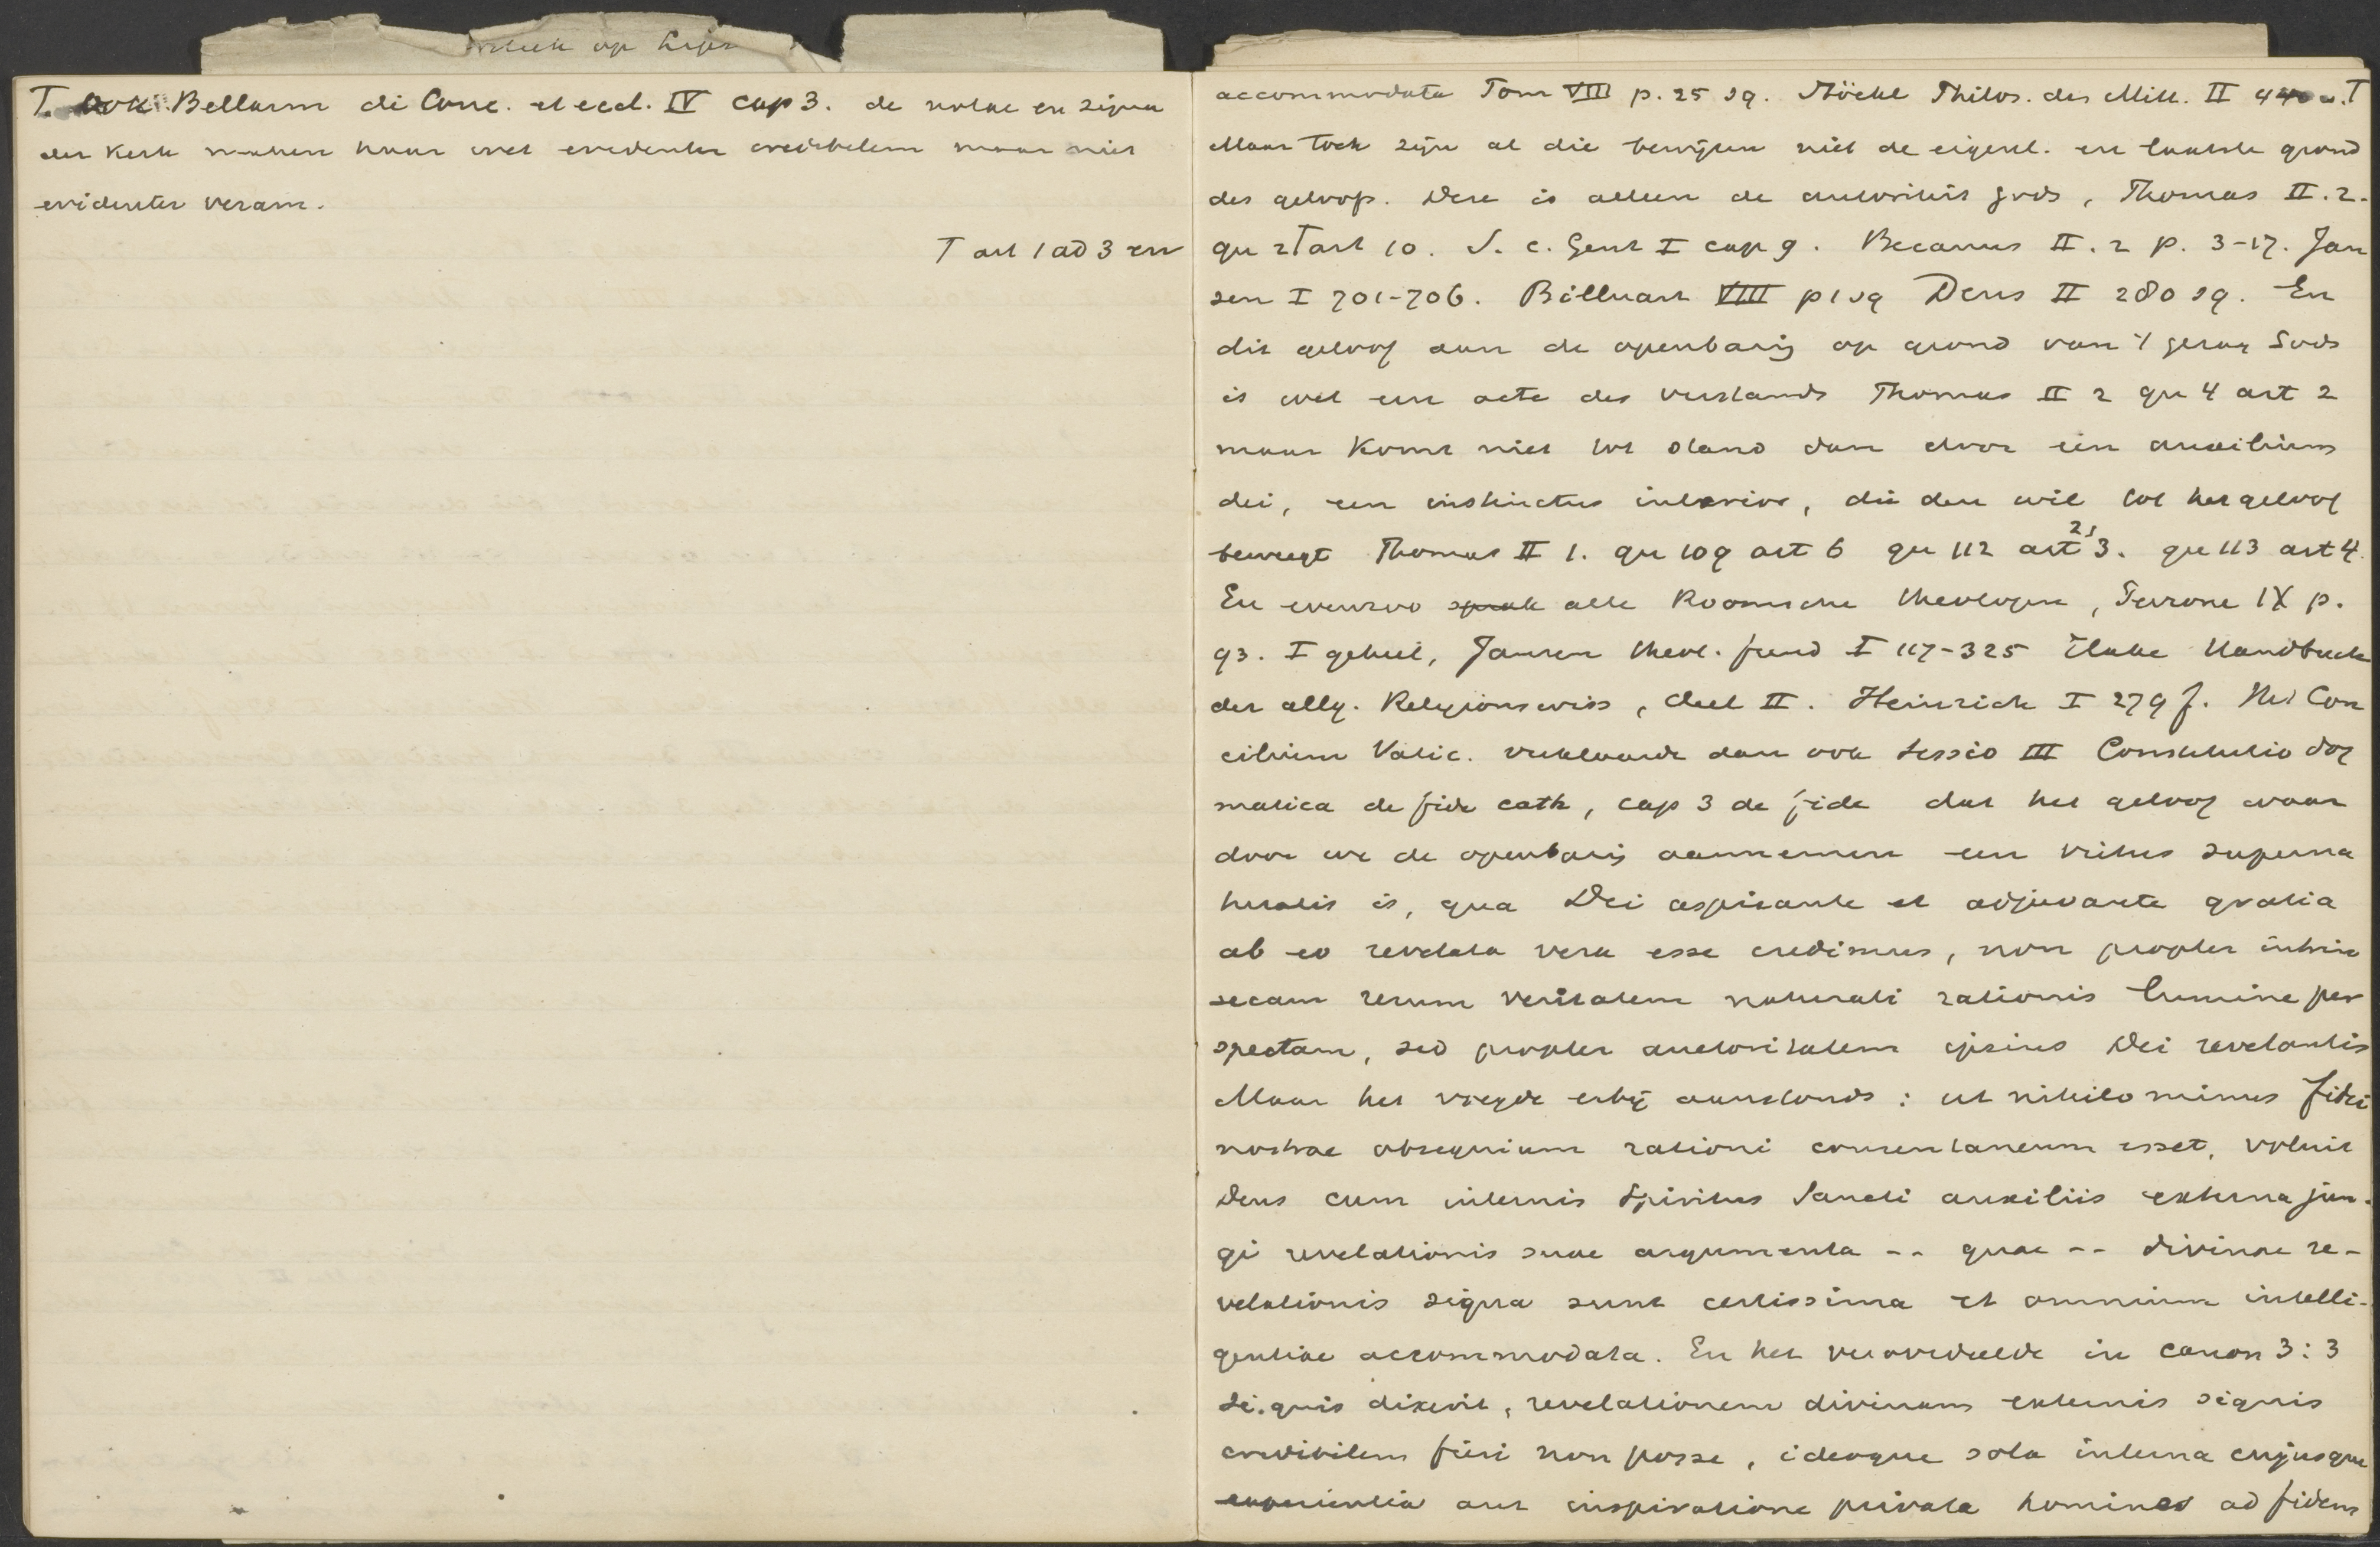 op
T. ook Bellarm di Conc. et eccl. IV cap 3. de notae en signa
der kerk maken haar wel evidenter credibilem maar niet
evidenter veram.
T art 1 ad 3 en
accommodata Tom VIII p. 25 sq. Stöckl Philos. des Mitt. II 440 u. T
Maar toch zijn al die bewijzen niet de eigenl. en laatste grond
des geloofs. Deze is alleen de autoriteit Gods, Thomas II. 2.
qu 2 T art 10. S. c. Gent I cap 9. Becanus II. 2 p. 3-17. Jan
sen I 701-706. Billuart VIII p 1 sq Dens II 280 sq. En
dit geloof aan de openbarig op grond van 't gezag Gods
is wel een acte des verstands Thomas II 2 qu 4 art 2
maar komt niet tot stand dan door een auxilium
dei, een instinctus interior, die den wil tot het geloof
beweegt Thomas II 1. qu 109 art 6 qu 112 art 2, 3. qu 113 art 4.
En evenzoo alle Roomsche theologen, Perrone IX p.
93. I geheel, Jansen theol. fund I 117-325 Hake Handbuch
der allg. Religionswiss, deel II. Heinrich I 279 f. Het Con
cilium Vatic. verklaarde dan ook sessio III Constitutio dog
matica de fide cath, cap 3 de fide dat het geloof waar
door we de openbarig aannemen een virtus superna
turalis is, qua Dei aspirante et adjuvante gratia
ab eo revelata vera esse credimus, non propter intrin
secam rerum veritatem naturali rationis lumine per
spectam, sed propter auctoritatem ipsius Dei revelantis
Maar het voegde erbij aanstonds: ut nihilo minus fidei
nostrae obsequium rationi consentaneum esset, voluit
Deus cum internis Spiritus Sancti auxiliis externa jun-
gi revelationis suae argumenta -- quae -- divinae re-
velationis signa sunt certissima et omnium intelli-
gentiae accommodata. En het veroordeelde in canon 3:3
Si. quis dixerit, revelationem divinam externis signis
credibilem fieri non posse, ideoque sola interna cujusque
experientia aut inspiratione privata homines ad fidem